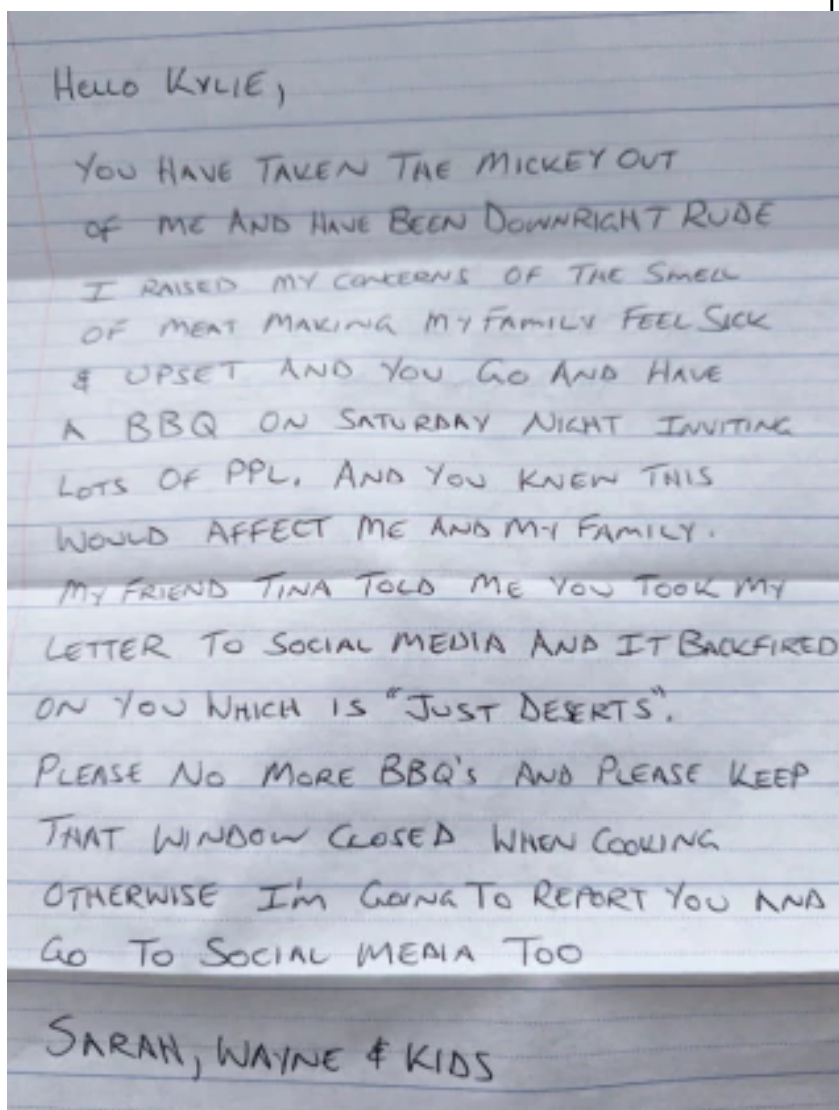 Hello Kylie,
You have taken the mickey out
of me and have been downright rude
I raised my concerns of the smell
of meat making my family feel sick
& upset and you go and have
a BBQ on Saturday night inviting
lots of ppl. And you knew this
would affect me and my family.
My friend Tina told me you took my
letter to social media and it backfired
on you which is "just deserts".
Please no more BBQ's and please keep
that window closed when cooking
otherwise I'm going to report you and
go to social media too
Sarah, Wayne & kids